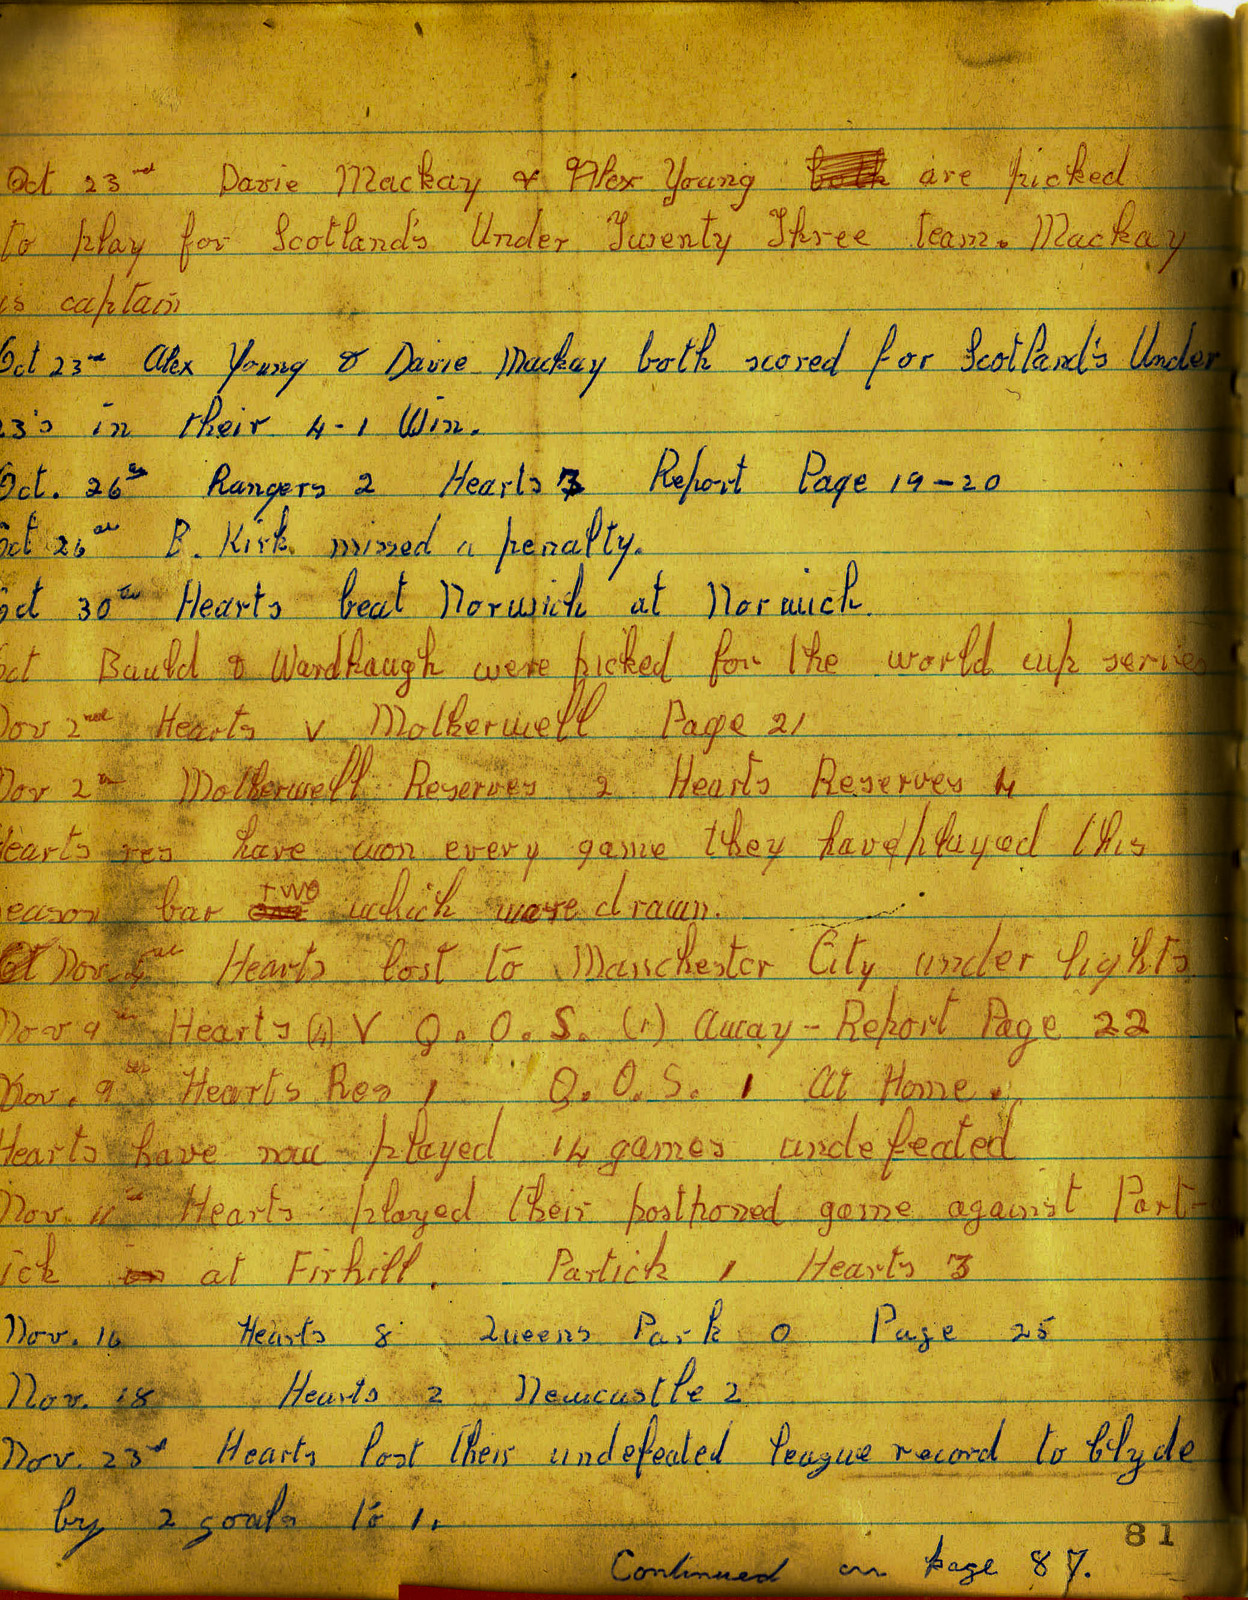 Oct 23rd Davie Mackay & Alex Young both are picked
to play for Scotland's Under Twenty Three team. Mackay
is captain
Oct 23rd Alex Young & Davie Mackay both scored for Scotland's Under
23's in their 4-1 Win.
Oct. 26th Rangers 2 Hearts 3 Report Page 19-20
Oct 26th B. Kirk missed a penalty.
Oct 30th Hearts beat Norwich at Norwich.
Oct Bauld & Wardhaugh were picked for the world cup series
Nov 2nd Hearts v Motherwell Page 21
Nov 2nd Motherwell Reserves 2 Hearts Reserves 4
Hearts res have won every game they have/played this
eason bar two which were drawn.
Nov. Hearts lost to Manchester City under lights
Nov 9th Hearts (4) V Q.O.S. (1) away - Report Page 22
Nov. 9th Hearts Res 1 Q.O.S. 1 At Home.
Hearts have now played 14 games undefeated
Nov. 11th Hearts played their postponed game against Part-
ick at Firhill. Partick 1 Hearts 3
Nov. 16 Hearts 8 Queens Park 0 Page 25
Nov. 18 Hearts 2 Newcastle 2
Nov. 23rd Hearts lost their undefeated league record to Clyde
by 2 goals to 1.
81
Continued on page 87.